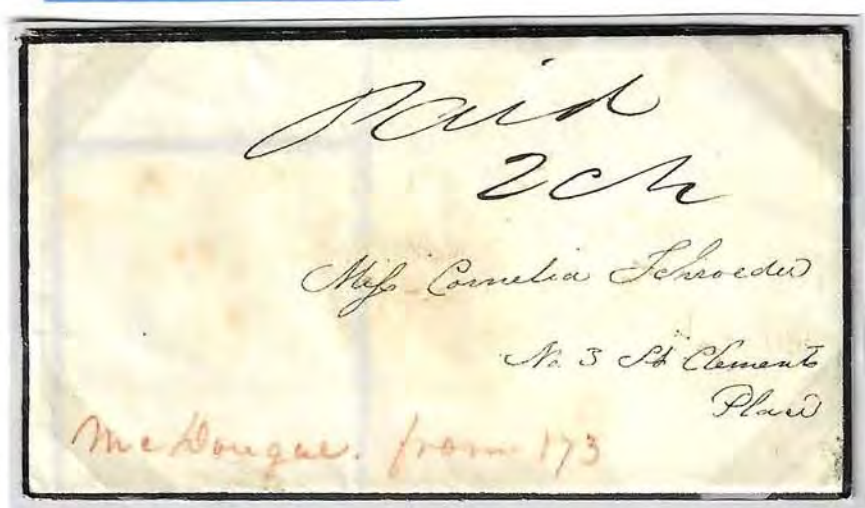 Paid
2 cts
Miss Cornelia Schroeder
No. 3 St Clements
Place
McDougal. from 173